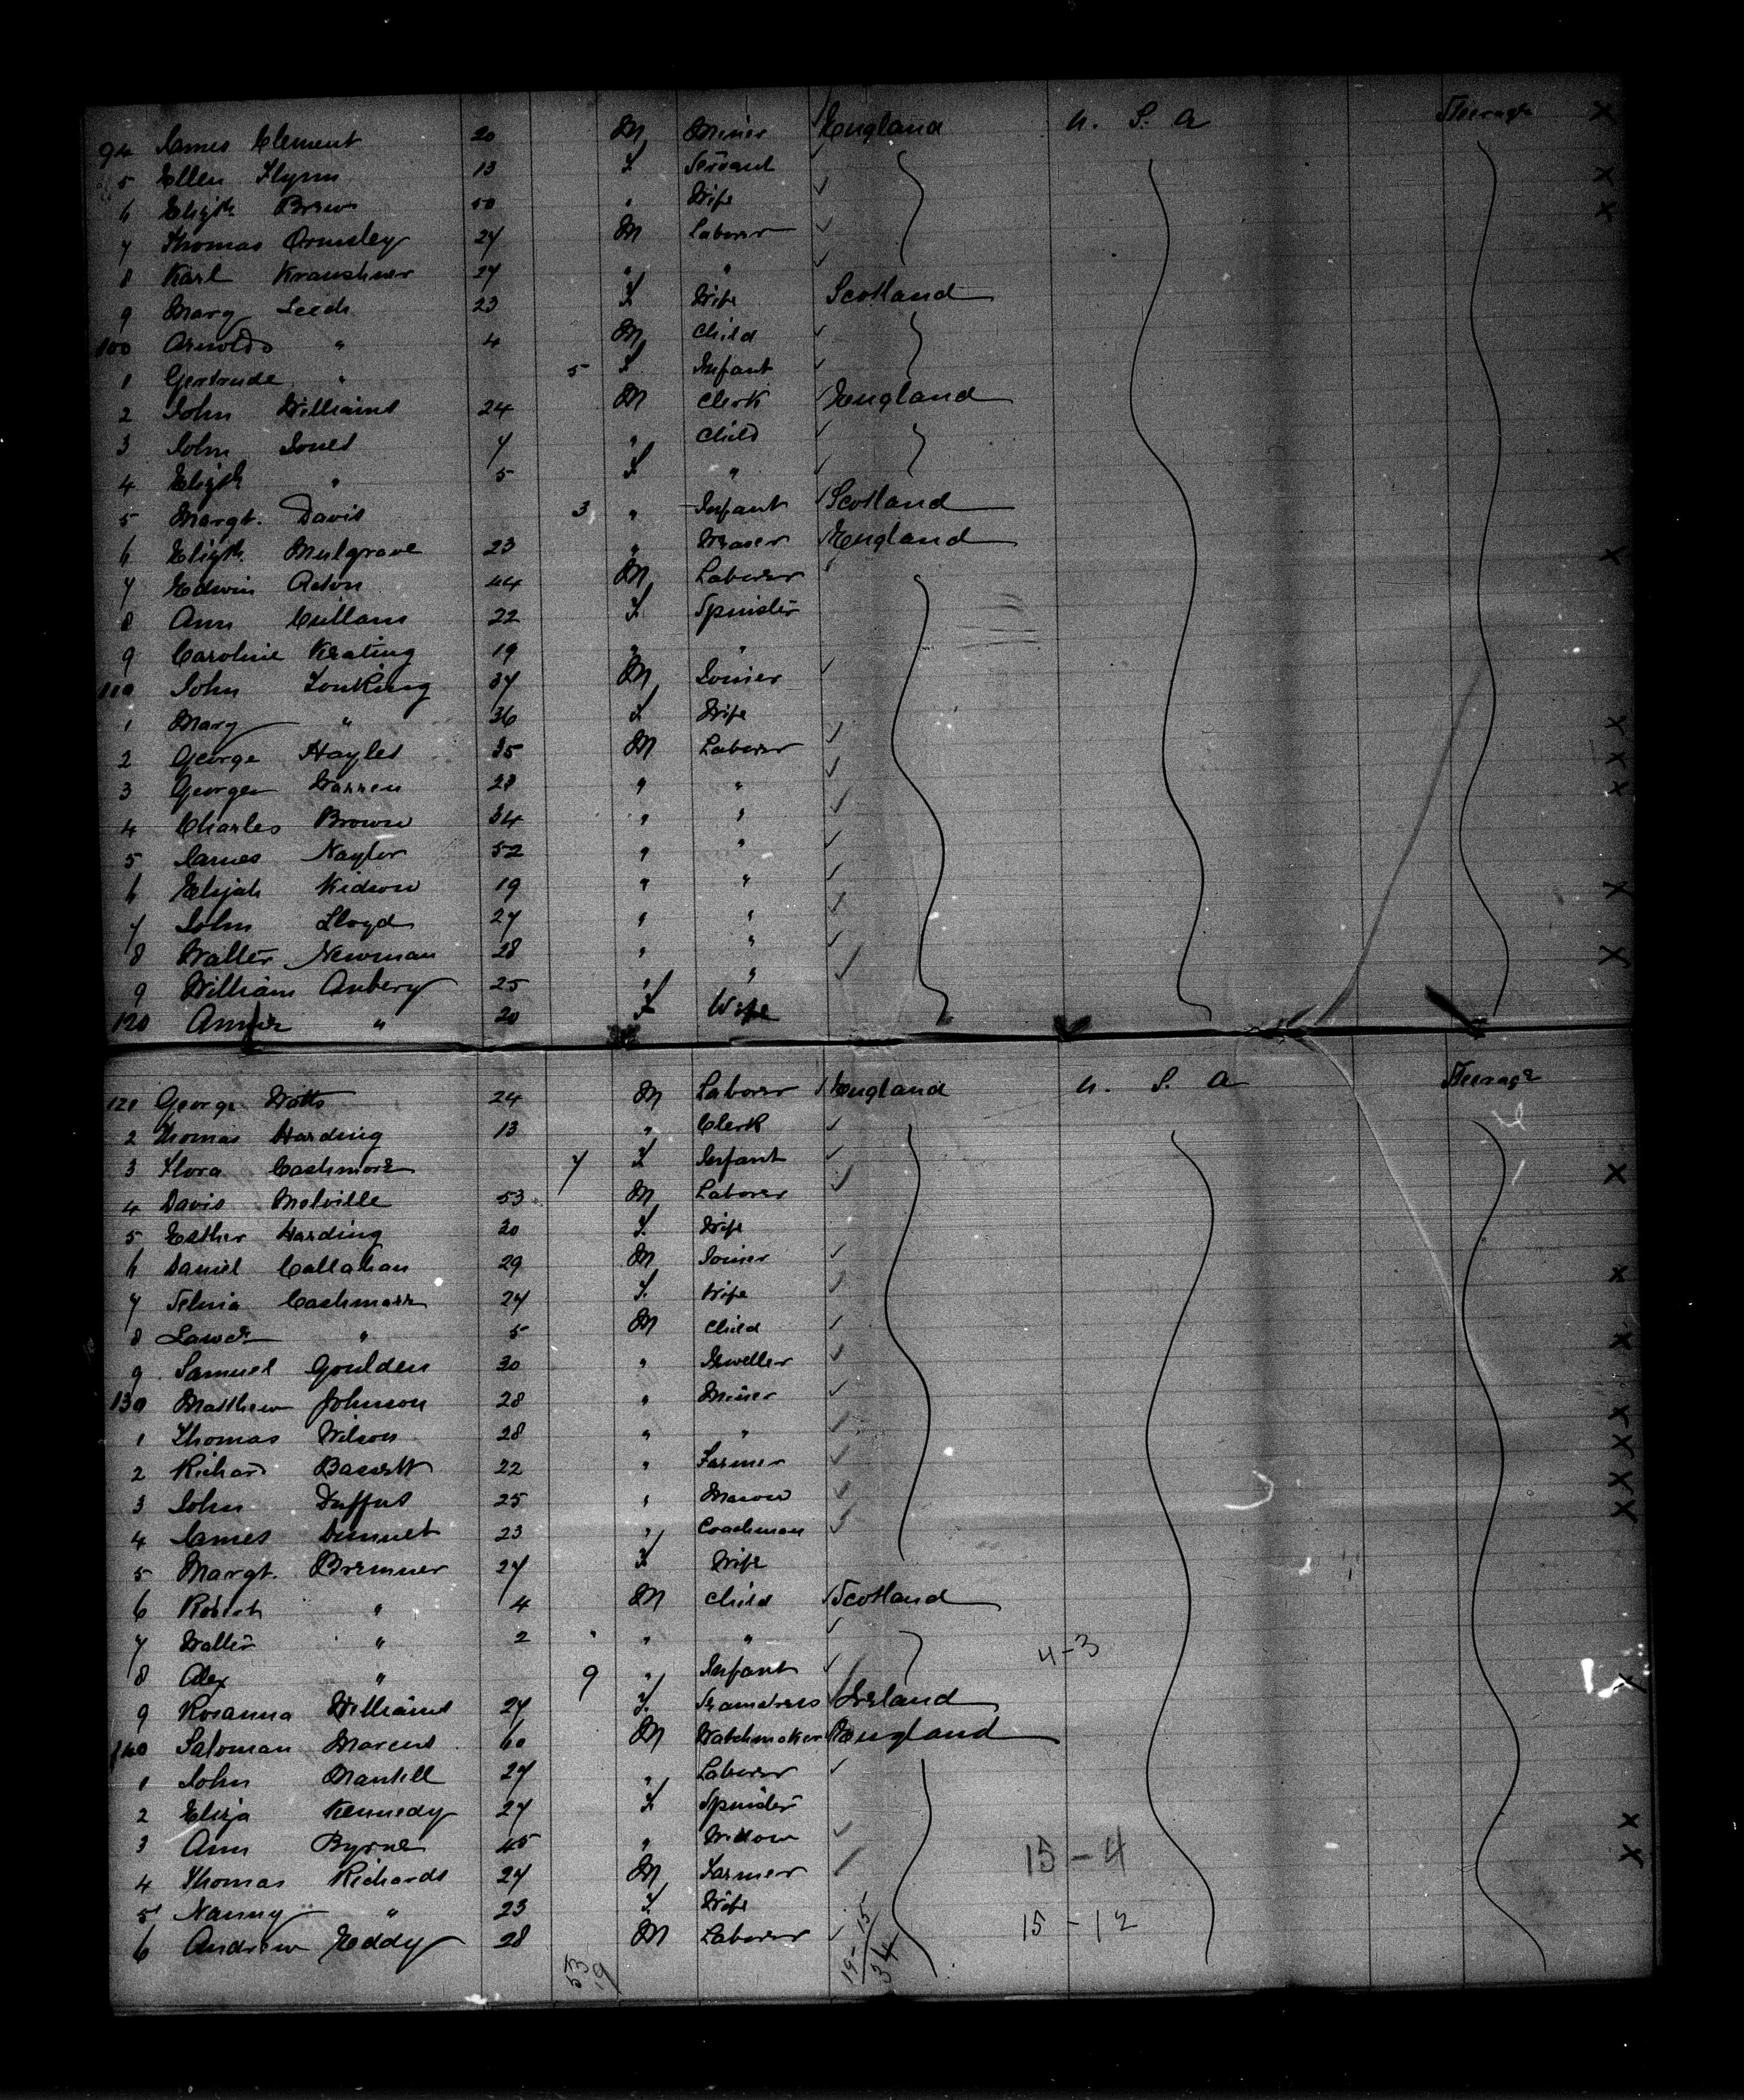 94 James Clement 20 M Miner England U. S. A Steerage X
5 Ellen Flynn 13 F Servant X
6 Elizth Brew 50 " Wife X
7 Thomas Ormsley 27 M Laborer
8 Karl 27 " "
9 Mary Leech 23 F Wife Scotland
100 Arnold " 4 M Child
1 Gertrude " 5 F Infant
2 John Williams 24 M Clerk England
3 John Jones 7 " Child
4 Elizth " 5 F "
5 Margt. Davis 3 " Infant Scotland
6 Elizth Mulgrave 23 " England X
7 Edwin Acton 44 M Laborer
8 Ann Cullam 22 F Spinster
9 Caroline Keating 19 " "
110 John Tonking 37 M Joiner
1 Mary " 36 F Wife X
2 George Hayles 35 M Laborer X
3 George Warren 28 " " X
4 Charles Brown 34 " "
5 James Naylor 52 " "
6 Elijah Kidson 19 " " X
7 John Lloyd 27 " "
8 Walter Newman 28 " " X
9 William Aubery 25 " "
120 Annie " 20 F Wife
121 George Watts 24 M Laborer England U. S. A Steerage
2 Thomas Harding 13 " Clerk
3 Flora Cashmore 7 F Infant X
4 David Melville 53 M Laborer
5 Esther Harding 30 F Wife
6 Daniel Callahan 29 M Joiner X
7 Selina Cashmore 27 F Wife
8 " 5 M Child X
9 Samuel Goulden 30 " Jeweller
130 Matthew Johnson 28 " Miner X
1 Thomas Wilson 28 " " X
2 Richard Bassett 22 " Farmer X
3 John Duffus 25 " Mason X
4 James Dunnet 23 " Coachman
5 Margt. Bremner 27 F Wife
6 Robert " 4 M Child Scotland
7 Walter " 2 " " "
8 Alex " 9 " Infant 4-3 X
9 Rosanna Williams 27 F. Seamstress Ireland
140 Saloman Marcus 60 M Watchmaker England
1 John Mantell 27 " Laborer
2 Eliza Kennedy 27 F Spinster X
3 Ann Byrne 45 " Widow 15-4 X
4 Thomas Richards 27 M Farmer
5 Nanny " 23 F. Wife 15-12
6 Andrew Eddy 28 M Laborer
53
19
19-15
34